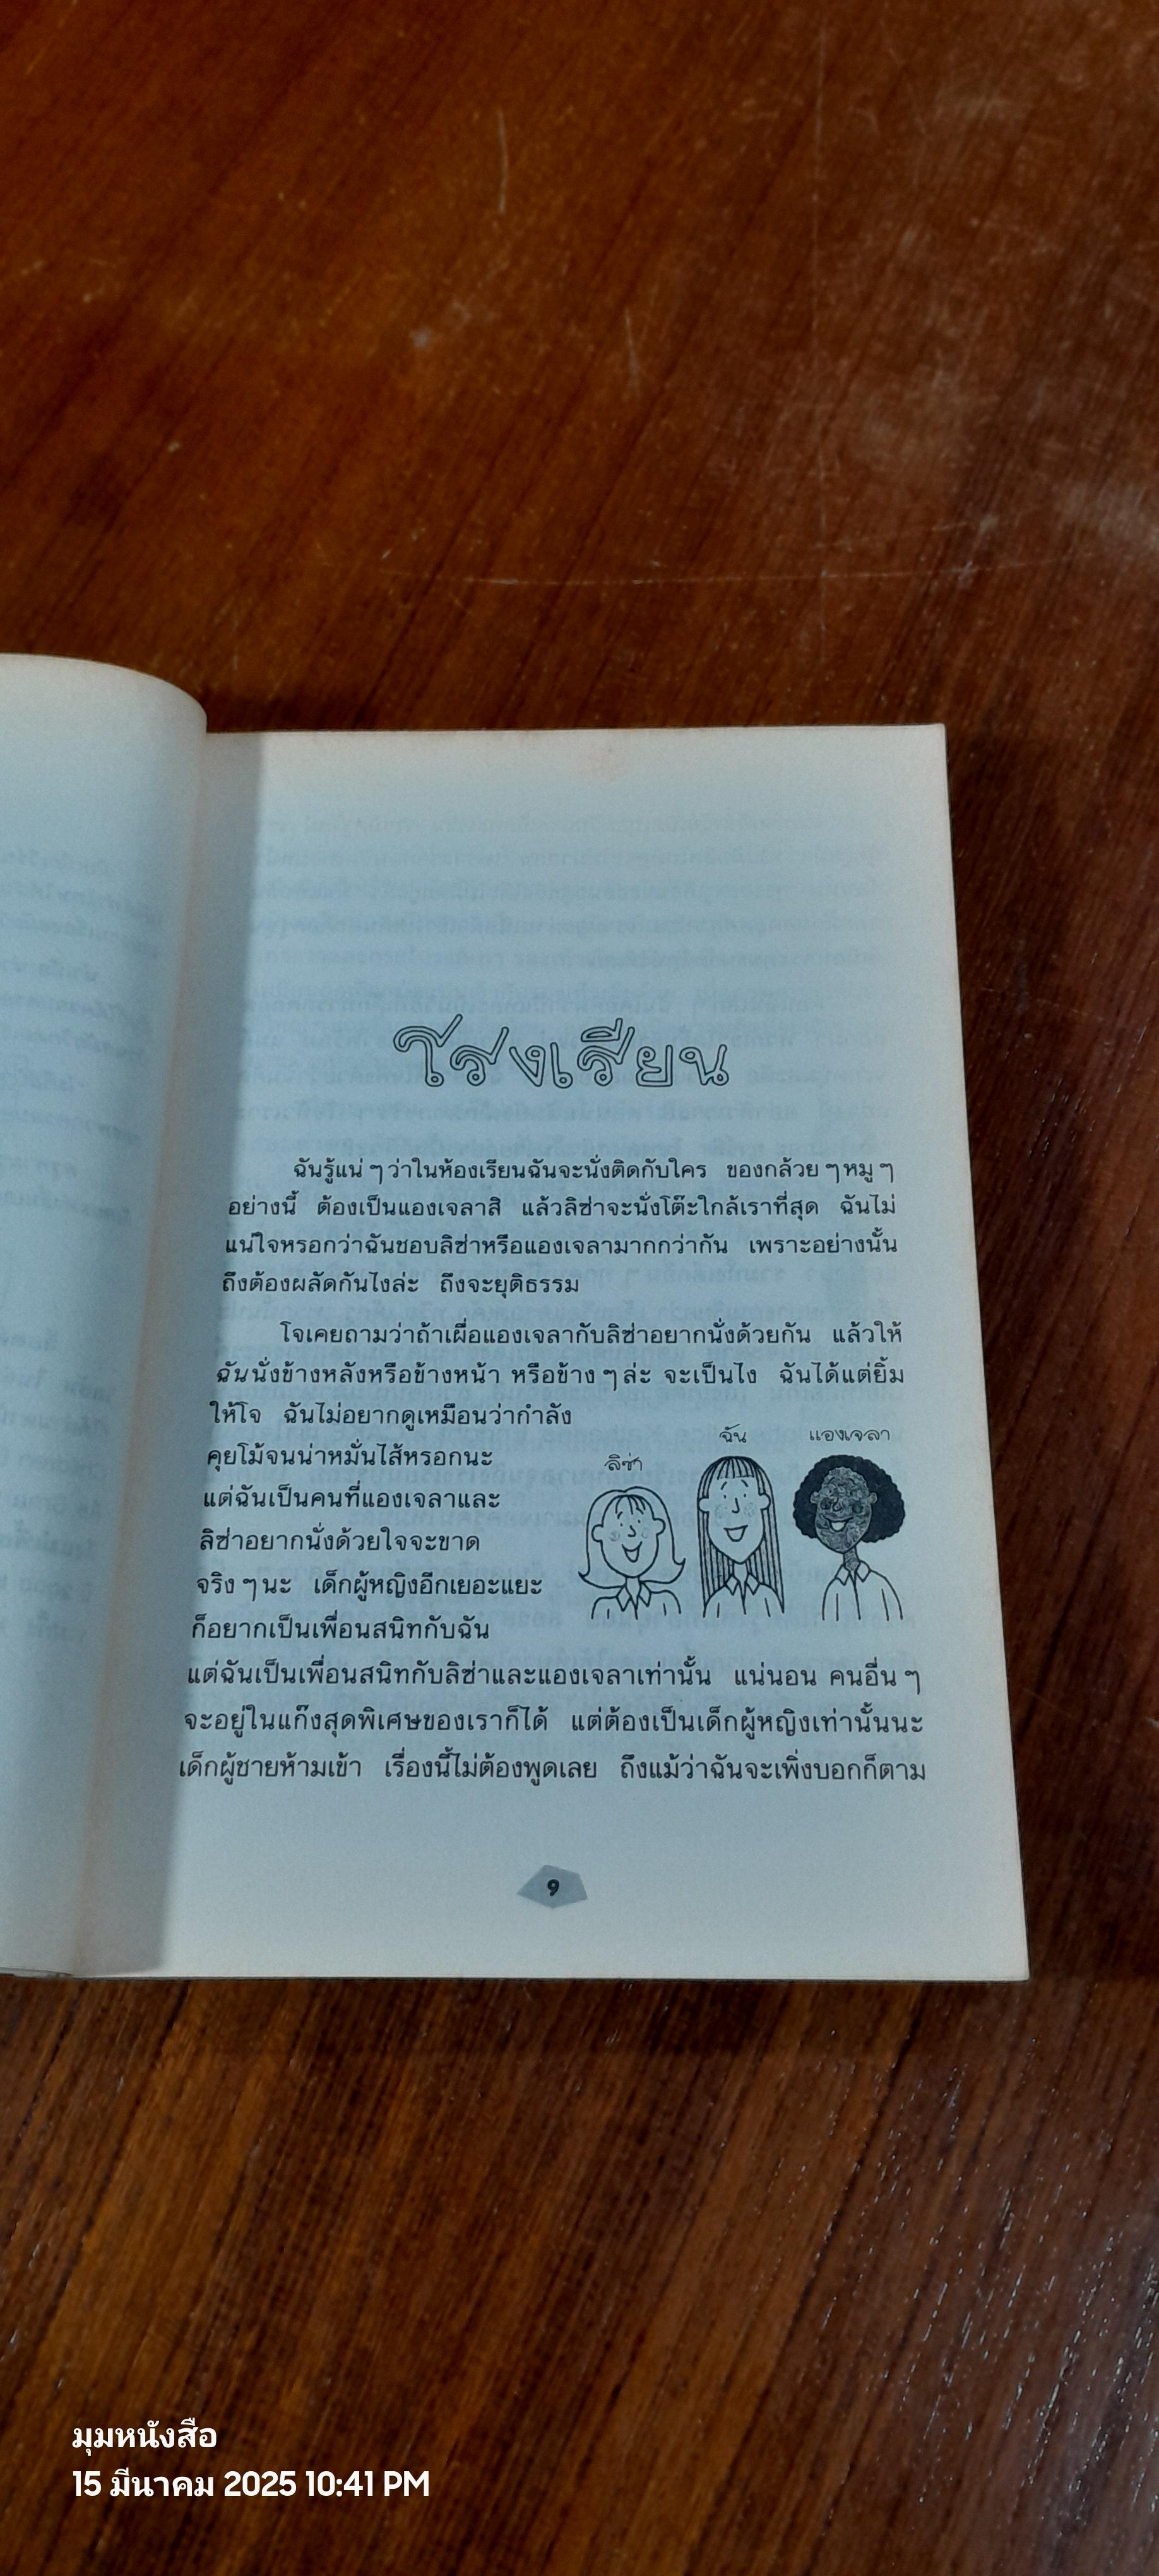 โรงเรียน
ฉันรู้แน่ ๆ ว่าในห้องเรียนฉันจะนั่งติดกับใคร ของกล้วย ๆ หมู ๆ
อย่างนี้ ต้องเป็นแองเจลาสิ แล้วลิซ่าจะนั่งโต๊ะใกล้เราที่สุด ฉันไม่
แน่ใจหรอกว่าฉันชอบลิซ่าหรือแองเจลามากกว่ากัน เพราะอย่างนั้น
ถึงต้องผลัดกันไงล่ะ ถึงจะยุติธรรม
โจเคยถามว่าถ้าเผื่อแองเจลากับลิซ่าอยากนั่งด้วยกัน แล้วให้
ฉันนั่งข้างหลังหรือข้างหน้า หรือข้าง ๆ ล่ะ จะเป็นไง ฉันได้แต่ยิ้ม
ให้โจ ฉันไม่อยากดูเหมือนว่ากำลัง
คุยโม้จนน่าหมั่นไส้หรอกนะ
แต่ฉันเป็นคนที่แองเจลาและ
ลิซ่าอยากนั่งด้วยใจจะขาด
จริง ๆ นะ เด็กผู้หญิงอีกเยอะแยะ
ก็อยากเป็นเพื่อนสนิทกับฉัน
ลิซ่า
ฉัน
แองเจลา
แต่ฉันเป็นเพื่อนสนิทกับลิซ่าและแองเจลาเท่านั้น แน่นอน คนอื่น ๆ
จะอยู่ในแก๊งสุดพิเศษของเราก็ได้ แต่ต้องเป็นเด็กผู้หญิงเท่านั้นนะ
เด็กผู้ชายห้ามเข้า เรื่องนี้ไม่ต้องพูดเลย ถึงแม้ว่าฉันจะเพิ่งบอกก็ตาม
9
มุมหนังสือ
15 มีนาคม 2025 10:41 PM